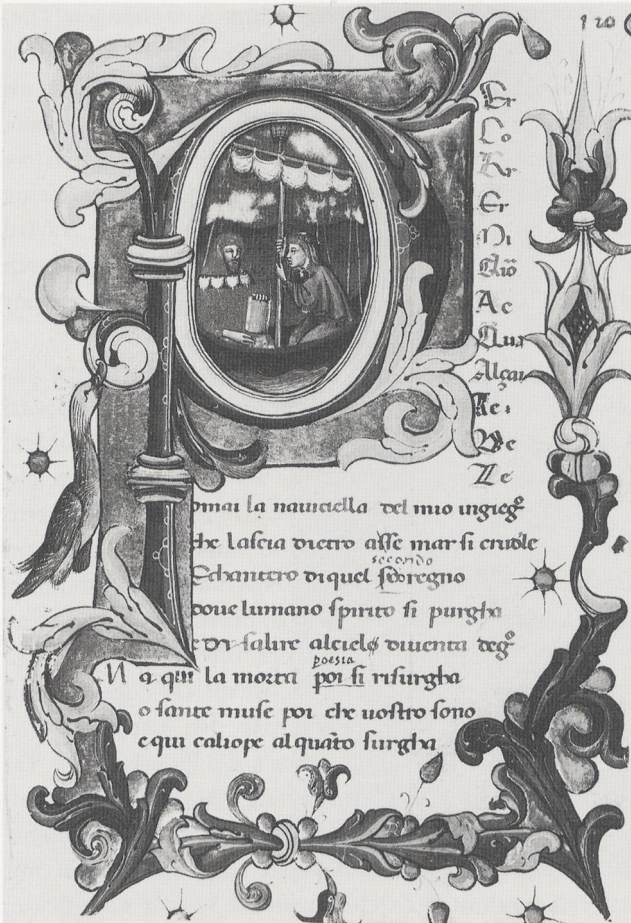 120
Er
Co
Er
Ac
Qua
Alçai
Ac
Ve
Ze
omai la nauiciella del mio ingiegº
che lascia dietro asse mar si crudele
secondo
Echantero di quel sedoregno
doue lumano spirito si purgha
e di salire alcielo diuenta degº
poesia
M a qui la morta poi si risurgha
o sante muse poi che uostro sono
e qui caliope alquãto surgha